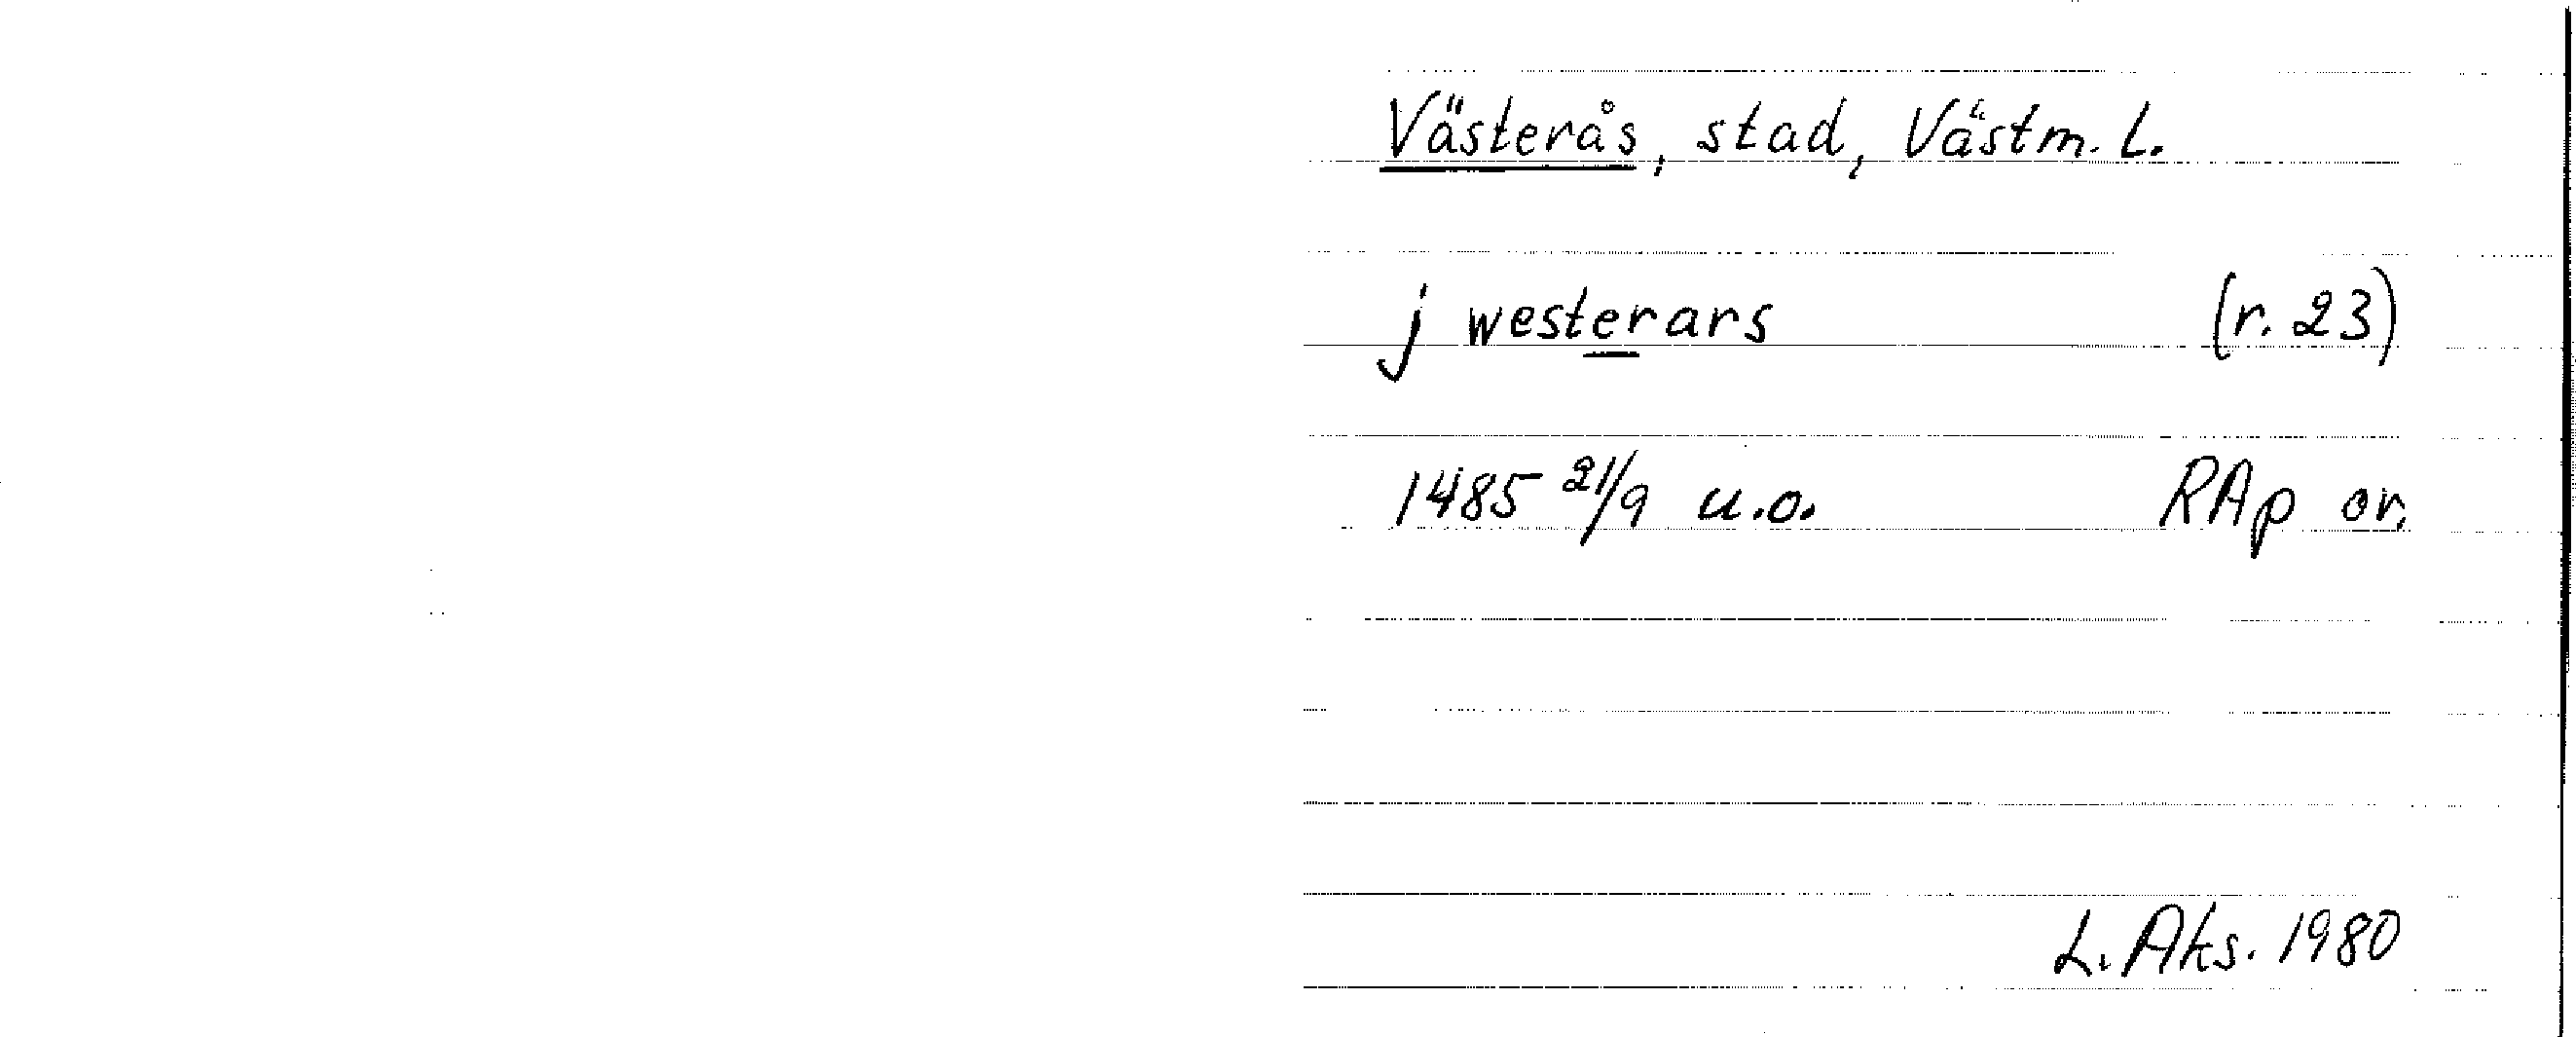 Västerås, stad, Västm. L.
j westerars (r. 23)
1485 21/9 u.o. RAp or.
L. Aks. 1980